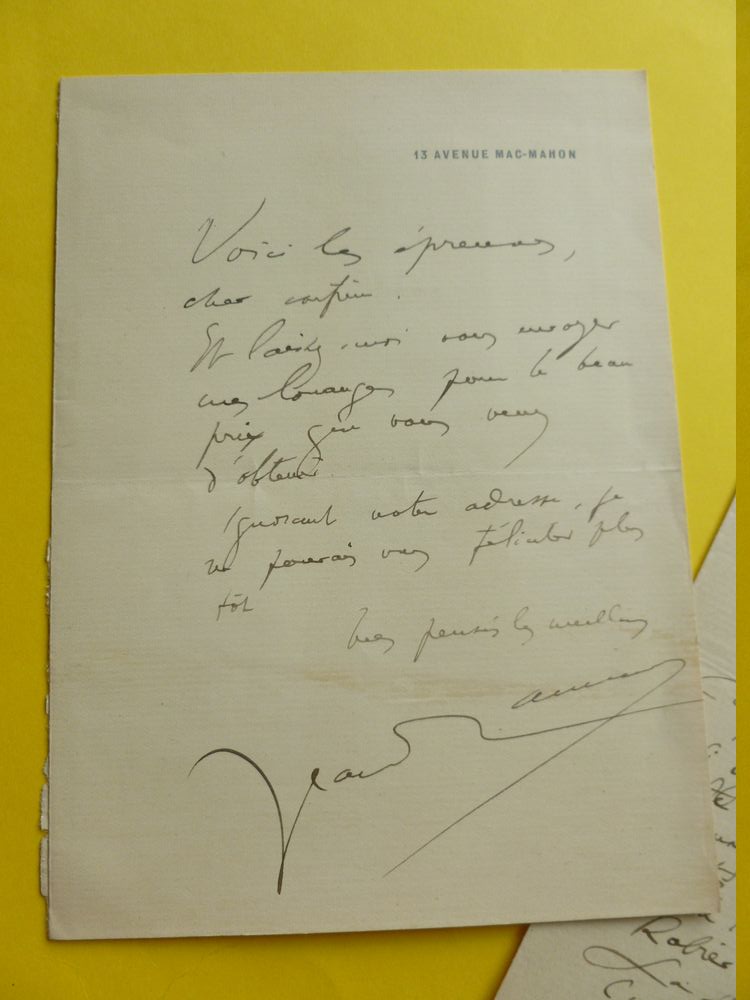 13 AVENUE MAC-MAHON
Voici les épreuves,
cher confrère.
Et laissez-moi vous envoyer
mes louanges pour le beau
prix que vous venez
d'obtenir.
Ignorant votre adresse, je
ne pouvais vous féliciter plus
tôt
Mes pensées les meilleures
Jean